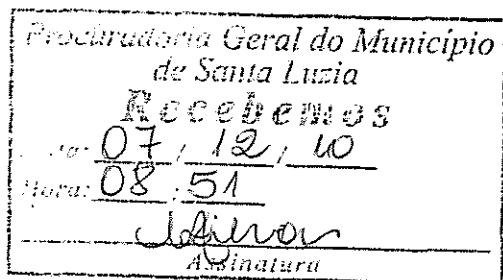 Procuradoria Geral do Município
de Santa Luzia
Recebemos
07 / 12 / 10
Hora: 08 : 51
Assinatura